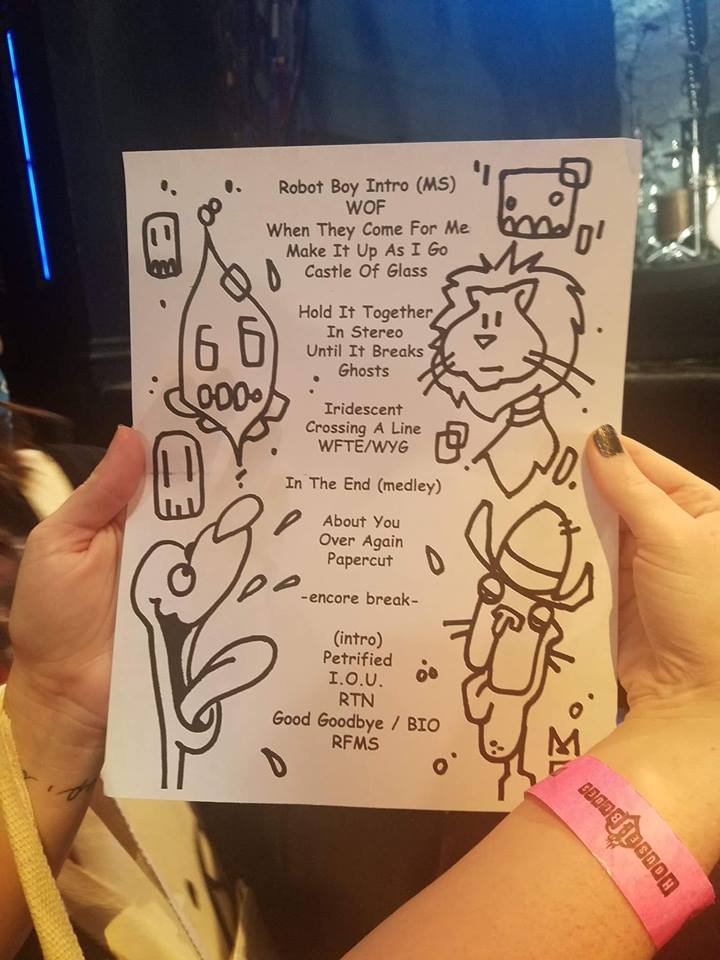 Robot Boy Intro (MS)
WOF
When They Come For Me
Make It Up As I Go
Castle Of Glass
Hold It Together
In Stereo
Until It Breaks
Ghosts
Iridescent
Crossing A Line
WFTE/WYG
In The End (medley)
About You
Over Again
Papercut
-encore break-
(intro)
Petrified
I.O.U.
RTN
Good Goodbye / BIO
RFMS
HOUSE OF BLUES